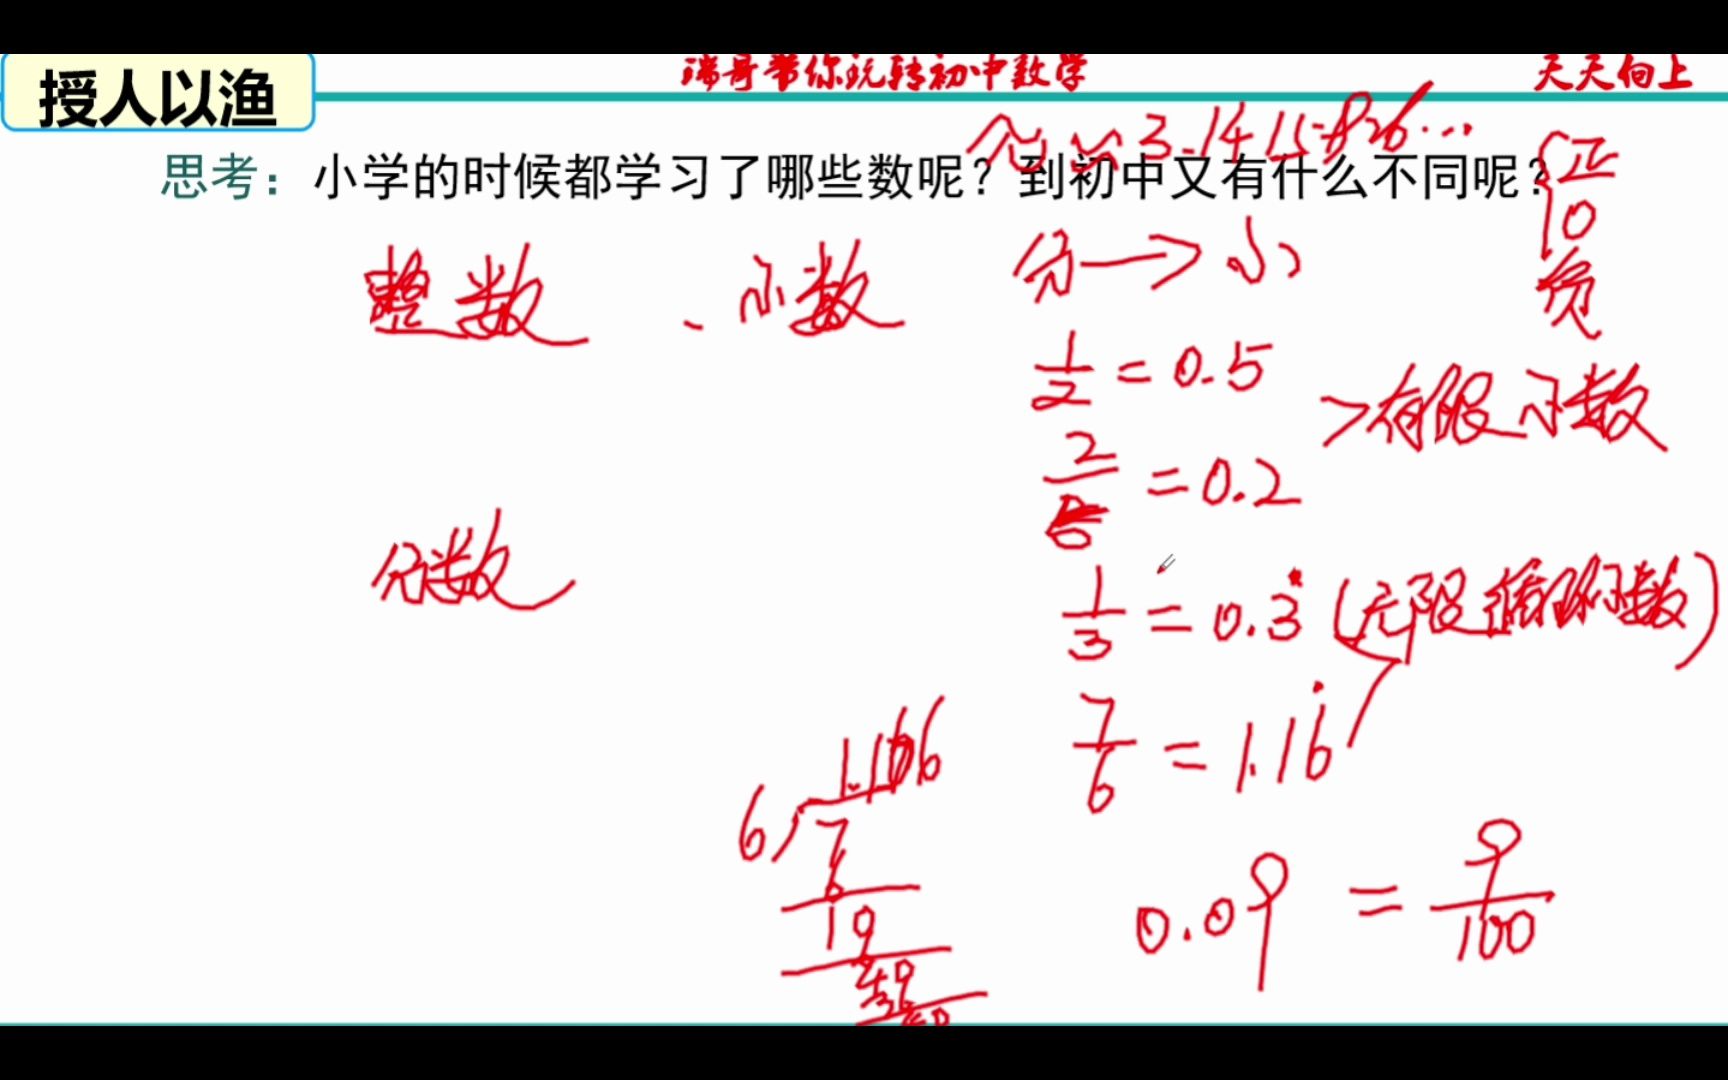 授人以渔
瑞哥带你玩转初中数学
天天向上
π ≈ 3.1415926...
思考：小学的时候都学习了哪些数呢？到初中又有什么不同呢？
正
0
负
整数、小数
分→小
1/2 = 0.5
>有限小数
2/ = 0.2
分数
1/3 = 0.3̇ (无限循环小数)
7/6 = 1.16̇
1.166
6 7
6
10
0.09 = 9/100